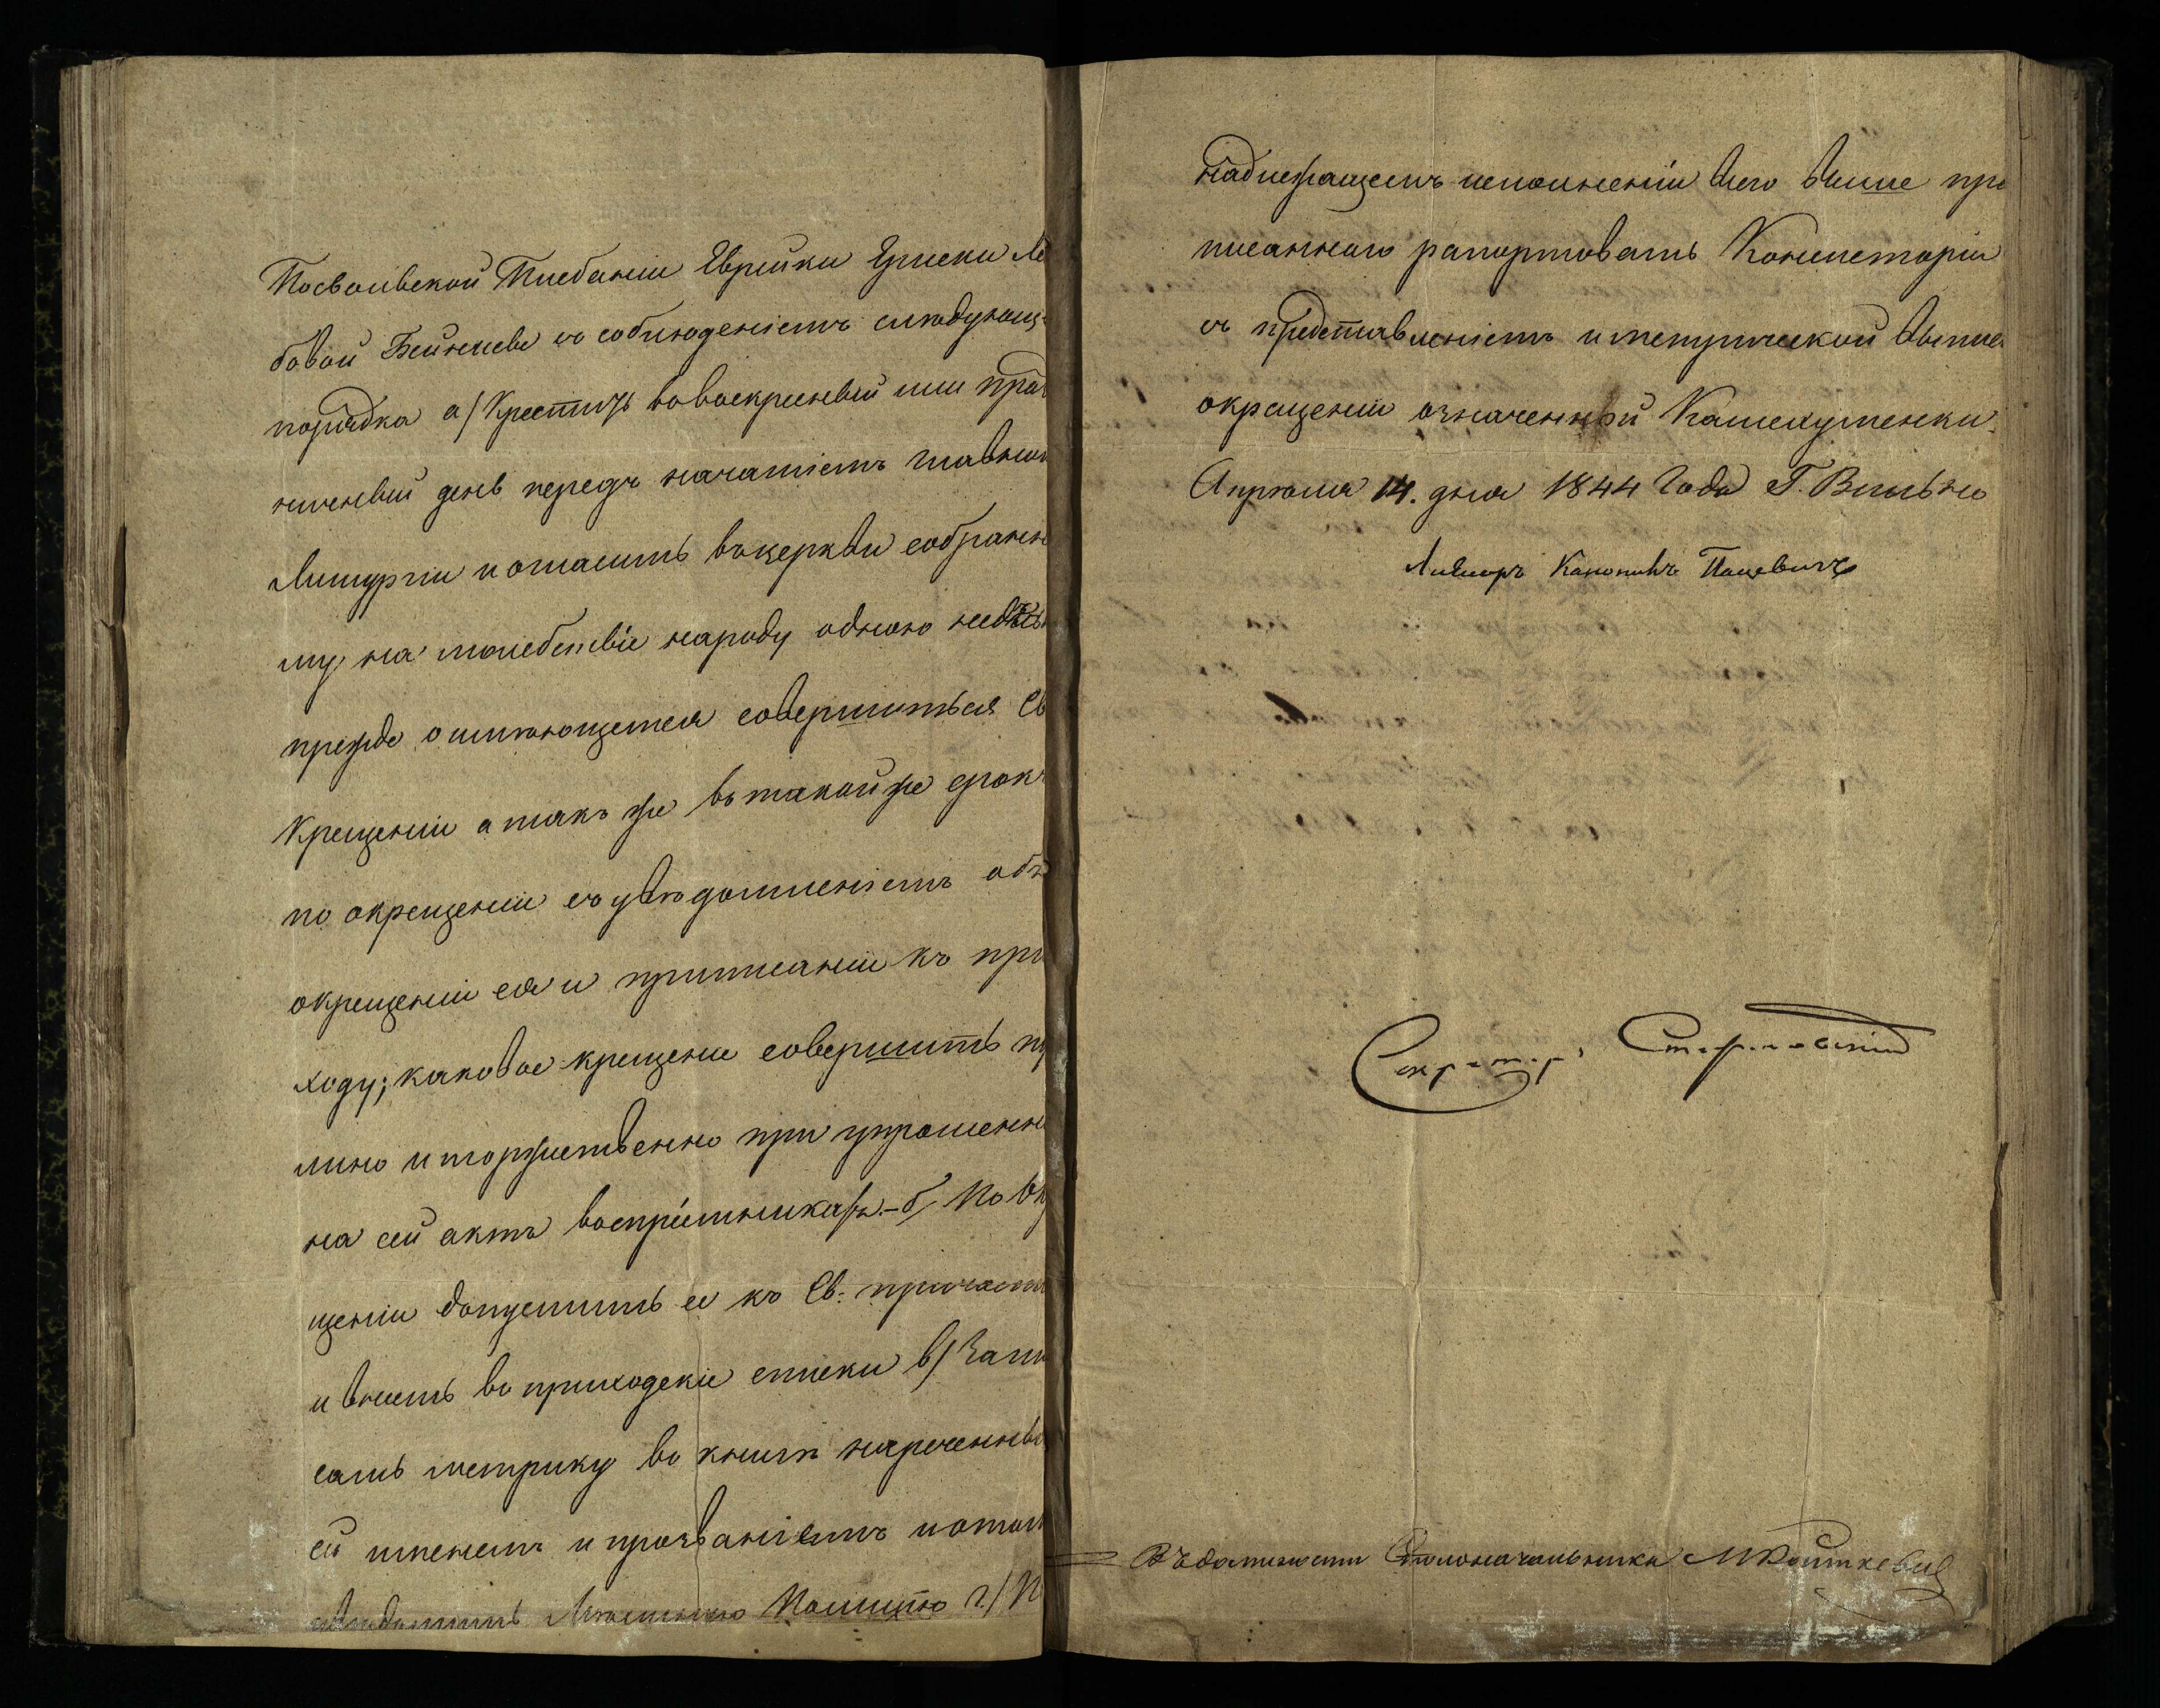 Посвольвской Плебаніи Еврейки Ериски Ле
бовой Бейнисевы съ соблюденіемъ слѣдующ-
порядка а/ Крестить въ воскресный или праз
ничный день передъ начатіемъ главной
Литургіи и огласить въ церкви собранно
му на молебствіе народу одною недѣлею
прежде о имѣющемся совершиться Св
Крещеніи а такъ же въ такой же срокъ
по окрещеніи съ увѣдомленіемъ объ
окрещеніи ея и приписаніи къ при
ходу; каковое крещеніе совершить пу
лино и торжественно при упрошенн
на сей актъ воспріемникахъ.- б/ По вы
щеніи допустить ее къ Св: причаст
и внесть въ приходскіе списки в/ Запи
сать метрику въ книги нареченны
ей именемъ и прозваніемъ и о томъ
увѣдомить Мѣстную Полицію г/ П
надлежащемъ исполненіи всего выше про
писаннаго рапортовать Консисторіи
съ представленіемъ и метрической выписи
о крещеніи означенной Катехуменки.
Апрѣля 14. дня 1844 Года Г. Вильно
Ассесоръ Каноникъ Пацевичъ
Секретарь
Въ должности Столоначальника М Войткевичъ